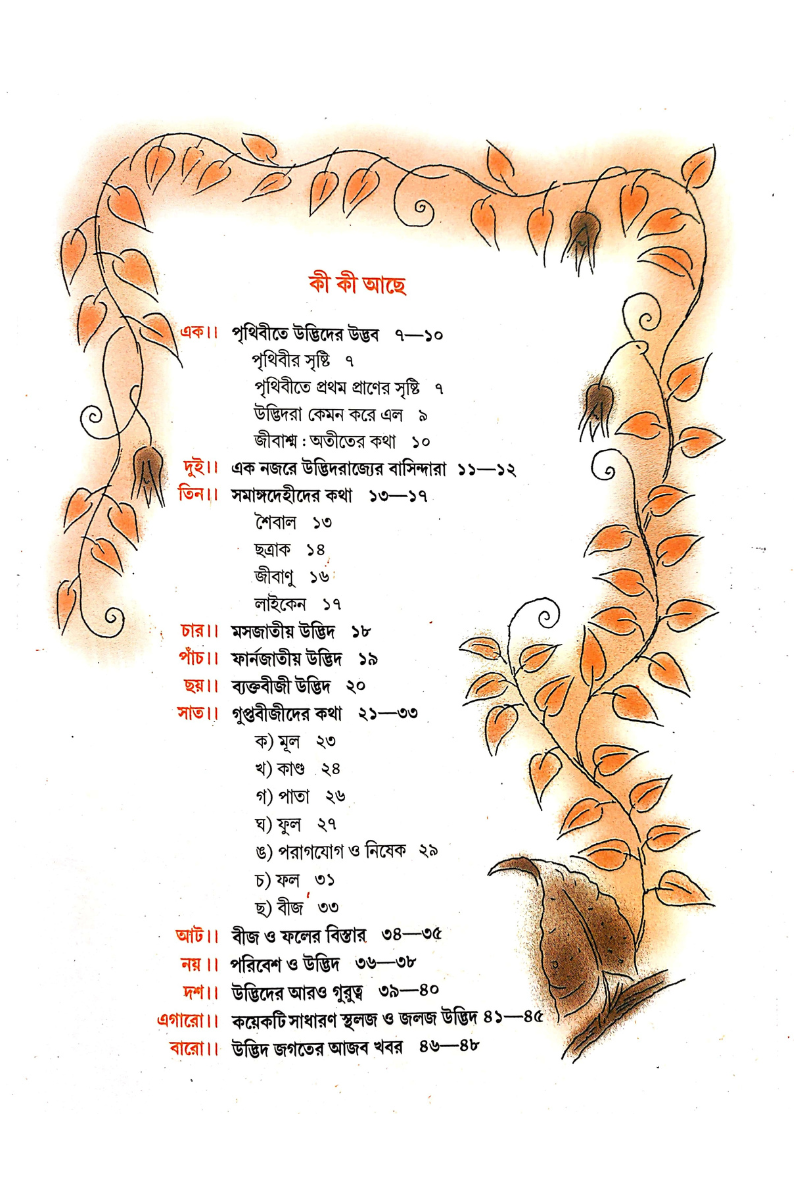 কী কী আছে
এক।। পৃথিবীতে উদ্ভিদের উদ্ভব ৭—১০
পৃথিবীর সৃষ্টি ৭
পৃথিবীতে প্রথম প্রাণের সৃষ্টি ৭
উদ্ভিদরা কেমন করে এল ৯
জীবাশ্ম : অতীতের কথা ১০
দুই।। এক নজরে উদ্ভিদরাজ্যের বাসিন্দারা ১১—১২
তিন।। সমাঙ্গদেহীদের কথা ১৩—১৭
শৈবাল ১৩
ছত্রাক ১৪
জীবাণু ১৬
লাইকেন ১৭
চার।। মসজাতীয় উদ্ভিদ ১৮
পাঁচ।। ফার্নজাতীয় উদ্ভিদ ১৯
ছয়।। ব্যক্তবীজী উদ্ভিদ ২০
সাত।। গুপ্তবীজীদের কথা ২১—৩৩
ক) মূল ২৩
খ) কাণ্ড ২৪
গ) পাতা ২৬
ঘ) ফুল ২৭
ঙ) পরাগযোগ ও নিষেক ২৯
চ) ফল ৩১
ছ) বীজ ৩৩
আট।। বীজ ও ফলের বিস্তার ৩৪—৩৫
নয়।। পরিবেশ ও উদ্ভিদ ৩৬—৩৮
দশ।। উদ্ভিদের আরও গুরুত্ব ৩৯—৪০
এগারো।। কয়েকটি সাধারণ স্থলজ ও জলজ উদ্ভিদ ৪১—৪৫
বারো।। উদ্ভিদ জগতের আজব খবর ৪৬—৪৮